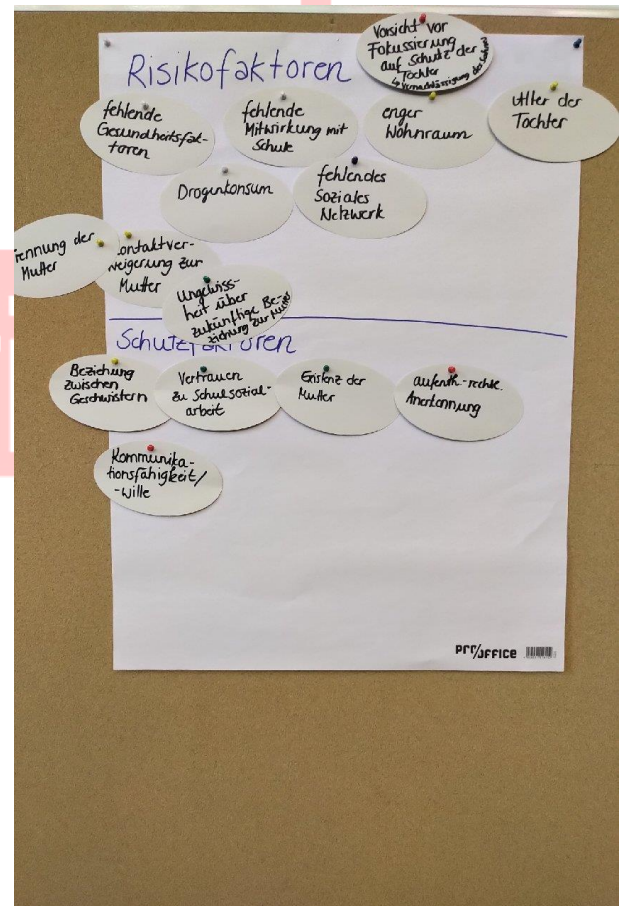 Risikofaktoren
Vorsicht vor
Fokussierung
auf Schutz der
Tochter
↳ Vernachlässigung des Sohnes
fehlende
Gesundheitsfak-
toren
fehlende
Mitwirkung mit
Schule
enger
Wohnraum
Alter der
Tochter
Drogenkonsum
fehlendes
Soziales
Netzwerk
ennung der
Mutter
ontaktver-
weigerung zur
Mutter
Ungewiss-
heit über
zukünftige Be-
ziehung zur Mutter
Schutzfaktoren
Beziehung
zwischen
Geschwistern
Vertrauen
zu Schulsozial-
arbeit
Existenz der
Mutter
aufenth.-rechtl.
Anerkennung
Kommunika-
tionsfähigkeit/
-wille
PRO/OFFICE